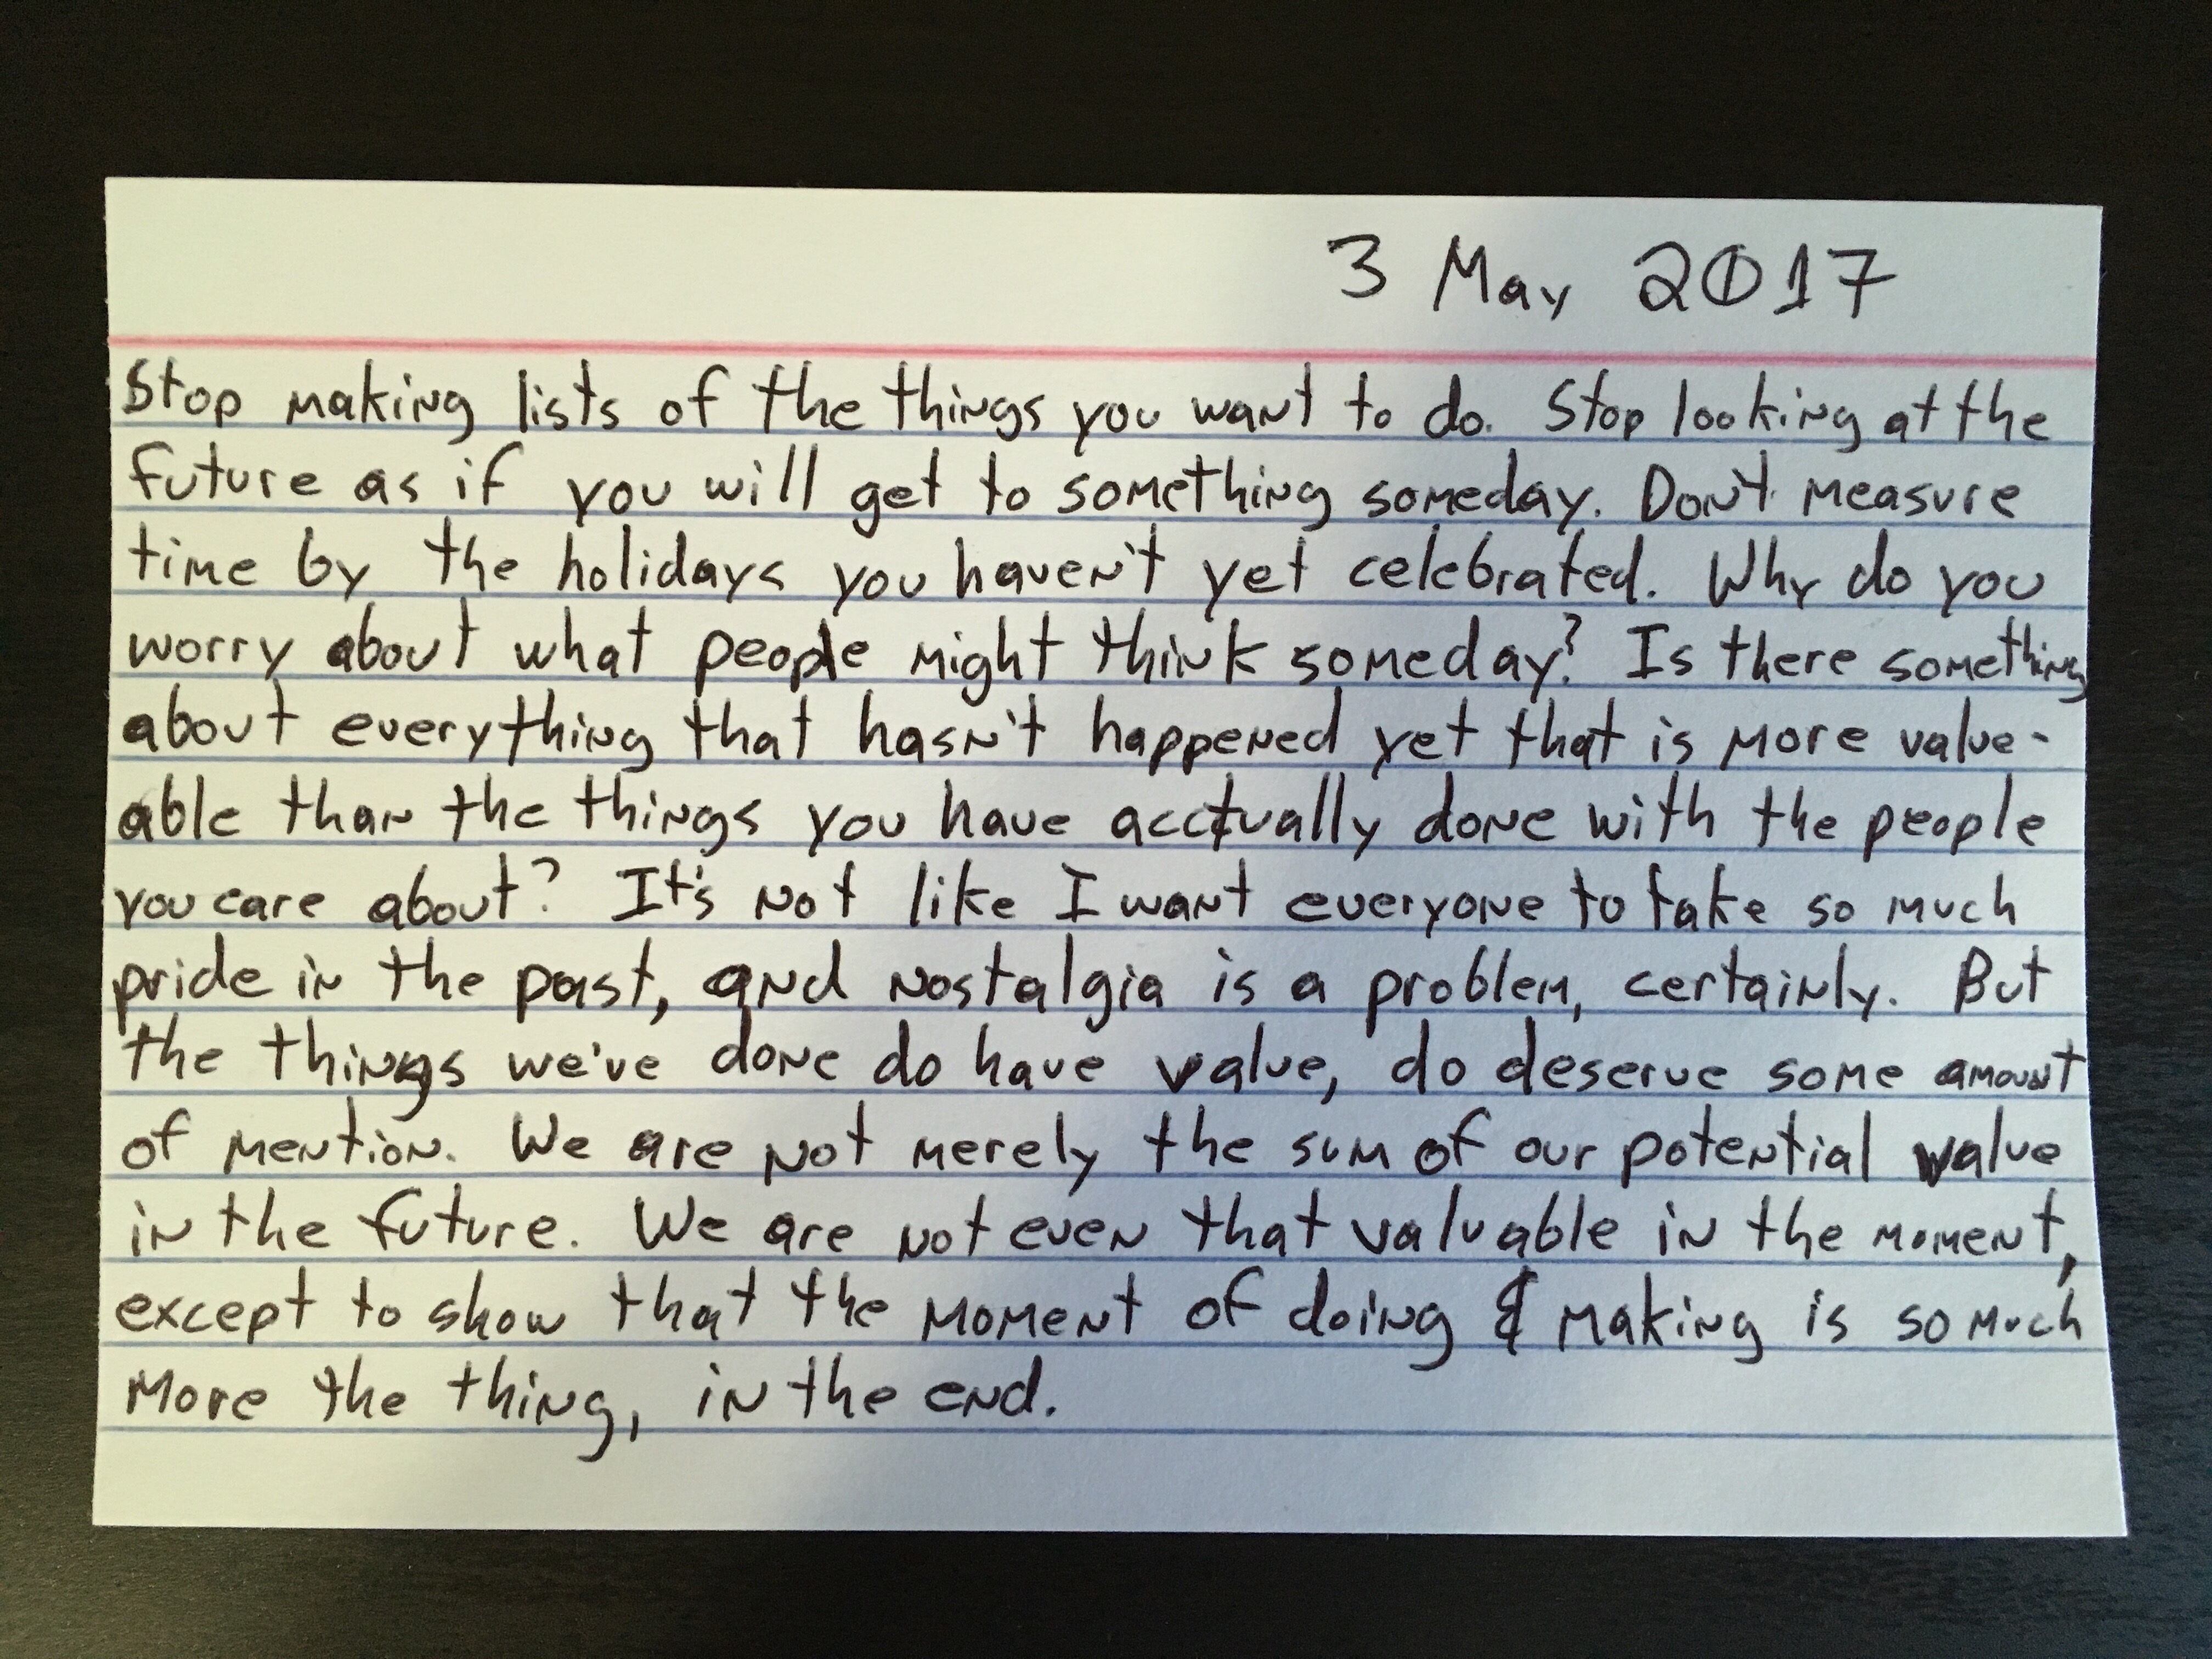 3 May 2017
Stop making lists of the things you want to do. Stop looking at the
future as if you will get to something someday. Don't measure
time by the holidays you haven't yet celebrated. Why do you
worry about what people might think someday? Is there something
about everything that hasn't happened yet that is more value-
able than the things you have acctually done with the people
you care about? It's not like I want everyone to take so much
pride in the past, and nostalgia is a problem, certainly. But
the things we've done do have value, do deserve some amount
of mention. We are not merely the sum of our potential value
in the future. We are not even that valuable in the moment,
except to show that the moment of doing & making is so much
more the thing, in the end.